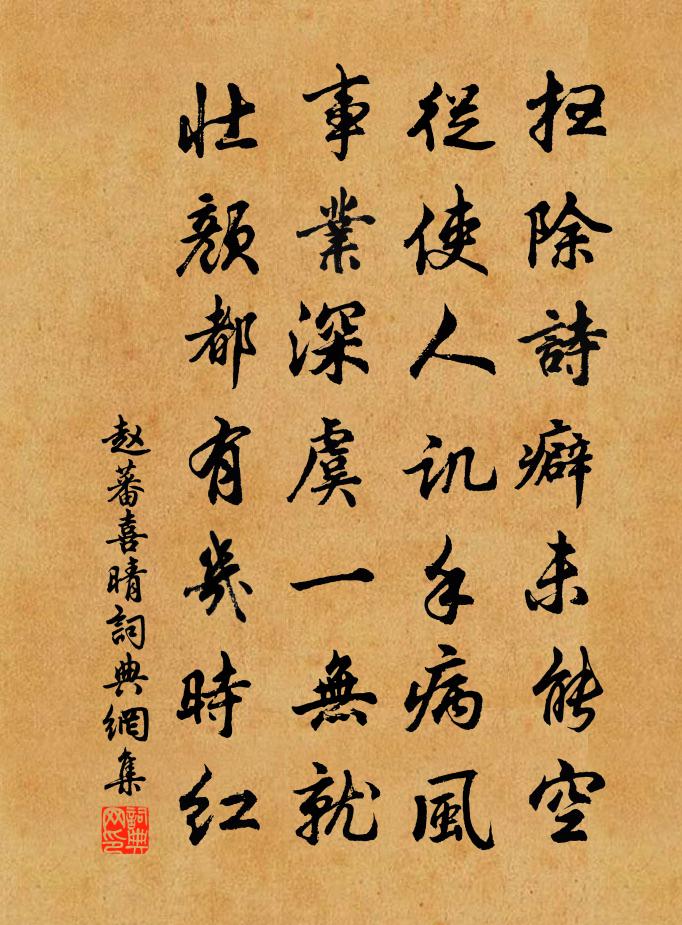 扫除詩癖未能空
從使人讥手病風
事業深虞一無就
壯顏都有幾時紅
赵蕃喜晴詞典網集
詞典网印